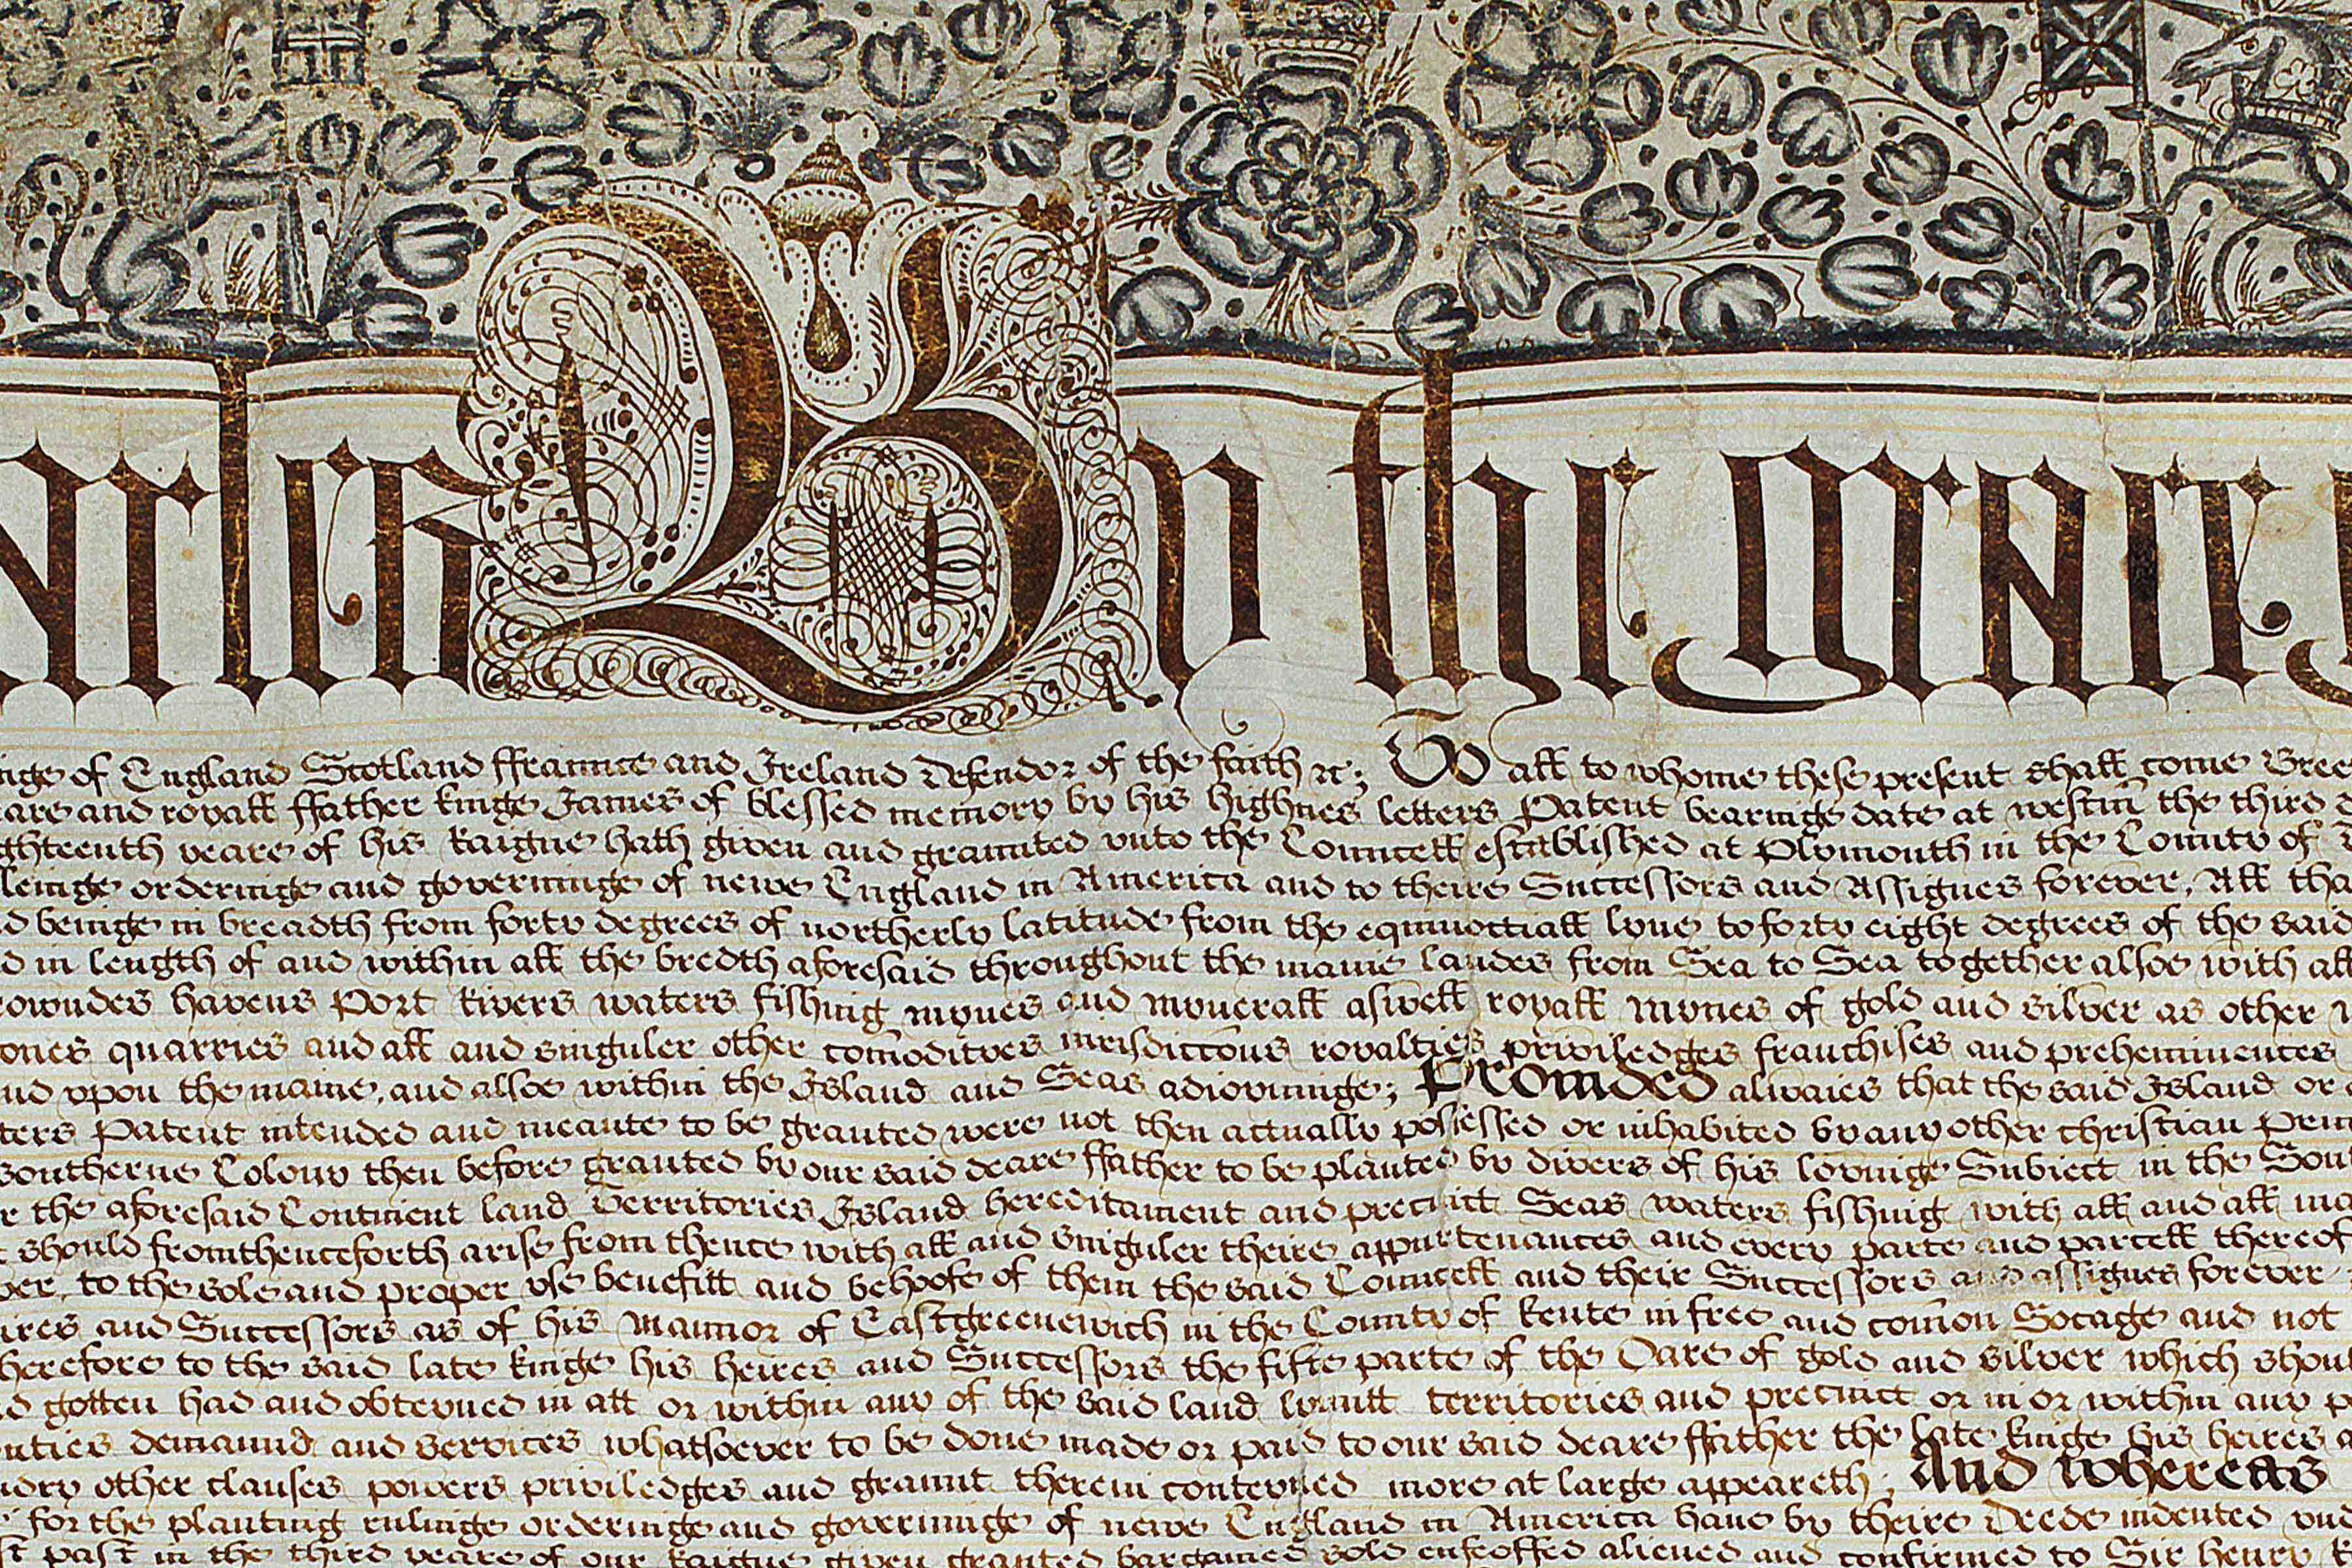 arles By the grace
inge of England Scotland ffraunce and Ireland Defendor of the faith &c; To all to whome these present shall come Gree
eare and royall ffather kinge James of blessed memory by his highnes letters Patent bearinge date at westm̄ the third
ghteenth yeare of his Raigne hath given and graunted vnto the Councell established at Plymouth in the County of
leinge orderinge and governinge of newe England in America and to theire Successors and Assignes forever, All tha
d beinge in breadth from forty degrees of northerly latitude from the equinoctiall lyne to forty eight degrees of the said
d in length of and within all the bredth aforesaid throughout the maine landes from Sea to Sea together alsoe with all
rowndes havens Port Rivers waters fishing mynes and myneralls aswell royall mynes of gold and silver as other
ones quarries and all and singuler other com̄odityes jurisdiccōns royalties priviledges franchises and preheminences
and vpon the maine, and alsoe within the Island and Seas adioyninge; Provided alwaies that the said Island or
ters Patent intended and meante to be graunted were not then actually possessed or inhabited by any other christian Prin
Southerne Colony then before graunted by our said deare ffather to be planted by divers of his lovinge Subiect in the Sou
r the aforesaid Continent land Territories Island hereditament and precinct Seas waters fishing with all and all
t should from thenceforth arise from thence with all and singuler theire appurtenances and every parte and parcell thereof
ver, to the sole and proper vse benefitt and behoofe of them the said Councell and their Successors and assignes forever
ires and Successors as of his mannor of Eastgreenewich in the County of Kente in free and com̄on Socage and not
herefore to the said late kinge his heires and Successors the fifte parte of the Oare of gold and silver which shou
d gotten had and obteyned in all or within any of the said land lymitt territories and precinct or in or within any p
uties demaund and services whatsoever to be done made or paid to our said deare ffather the late kinge his heires
ndry other clauses powers priviledges and graunt therein conteyned more at large appeareth; And whereas
for the planting rulinge orderinge and governinge of newe England in America have by theire Deede indented
st past in the third yeare of our Raigne given graunted bargained sold enfeoffed aliened and confirmed to Sir Henry